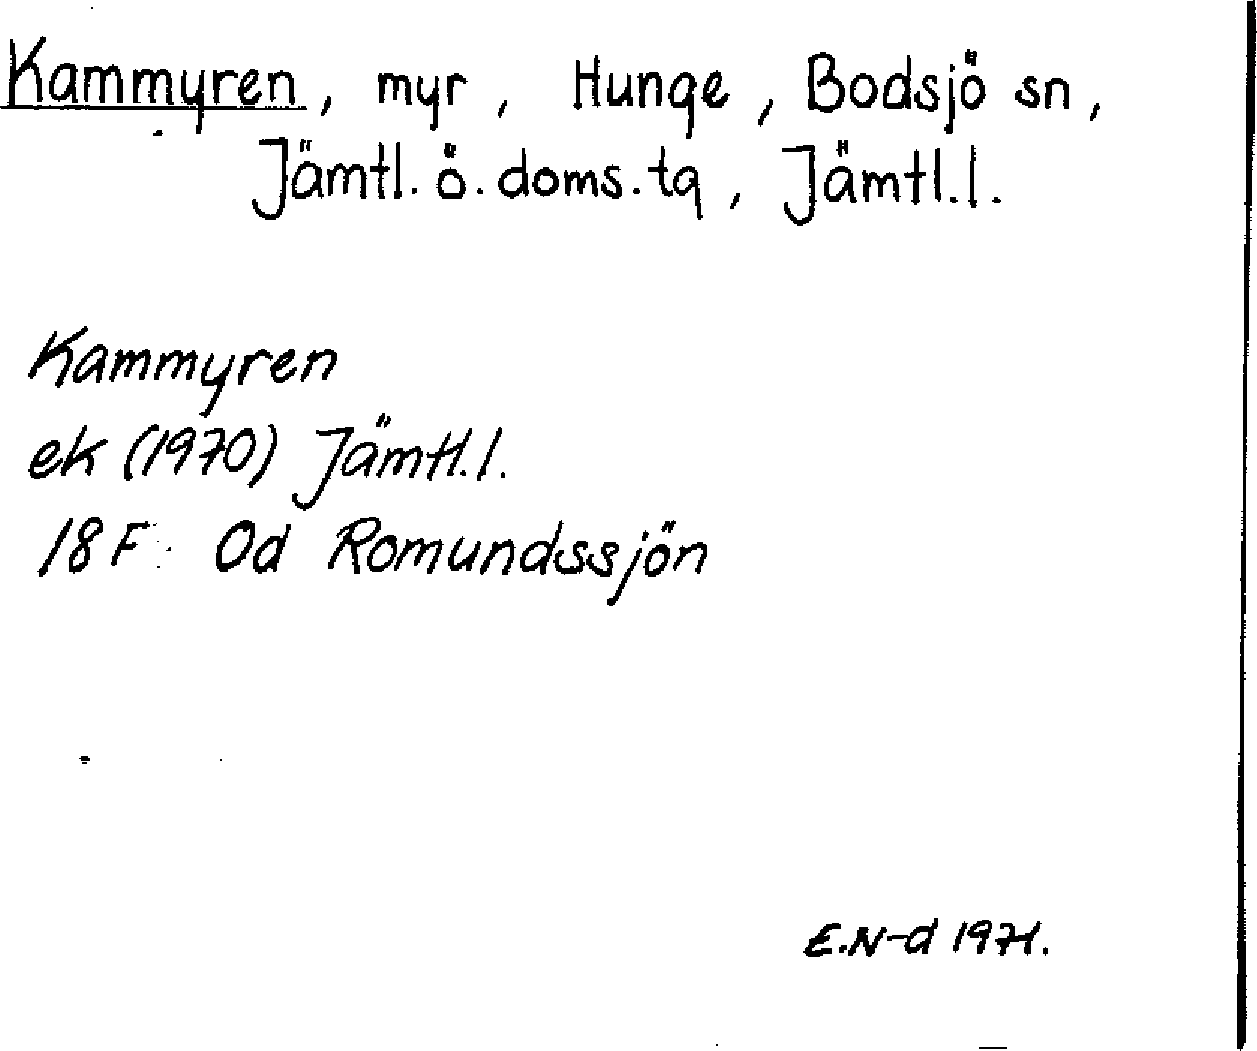 Kammyren, myr, Hunge, Bodsjö sn,
Jämtl. ö. doms. tg, Jämtl. l.
Kammyren
ek (1970) Jämtl. l.
18 F: Od Romundssjön
E.N-d 1971.